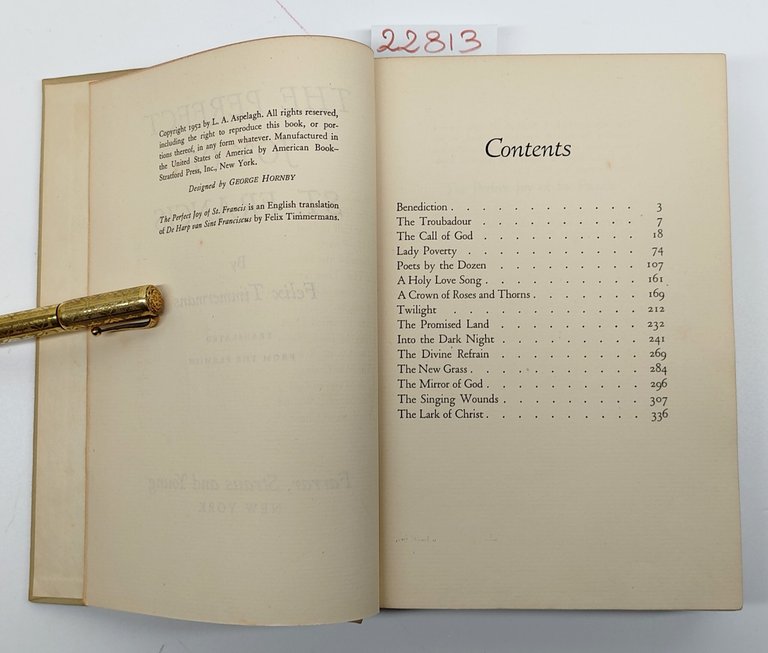 22813
Copyright 1952 by L. A. Aspelagh. All rights reserved,
including the right to reproduce this book, or por-
tions thereof, in any form whatever. Manufactured in
the United States of America by American Book–
Stratford Press, Inc., New York.
Designed by GEORGE HORNBY
The Perfect Joy of St. Francis is an English translation
of De Harp van Sint Franciscus by Felix Timmermans.
THE PERFECT
By
Felix Timmermans
TRANSLATED
FROM THE FLEMISH
Farrar, Straus and Young
NEW YORK
Contents
Benediction . . . . . . . . . . . 3
The Troubadour . . . . . . . . . . 7
The Call of God . . . . . . . . . . 18
Lady Poverty . . . . . . . . . . 74
Poets by the Dozen . . . . . . . . . 107
A Holy Love Song . . . . . . . . . 161
A Crown of Roses and Thorns . . . . . . . 169
Twilight . . . . . . . . . . . 212
The Promised Land . . . . . . . . . 232
Into the Dark Night . . . . . . . . . 241
The Divine Refrain . . . . . . . . . 269
The New Grass . . . . . . . . . . 284
The Mirror of God . . . . . . . . . 296
The Singing Wounds . . . . . . . . . 307
The Lark of Christ . . . . . . . . . 336